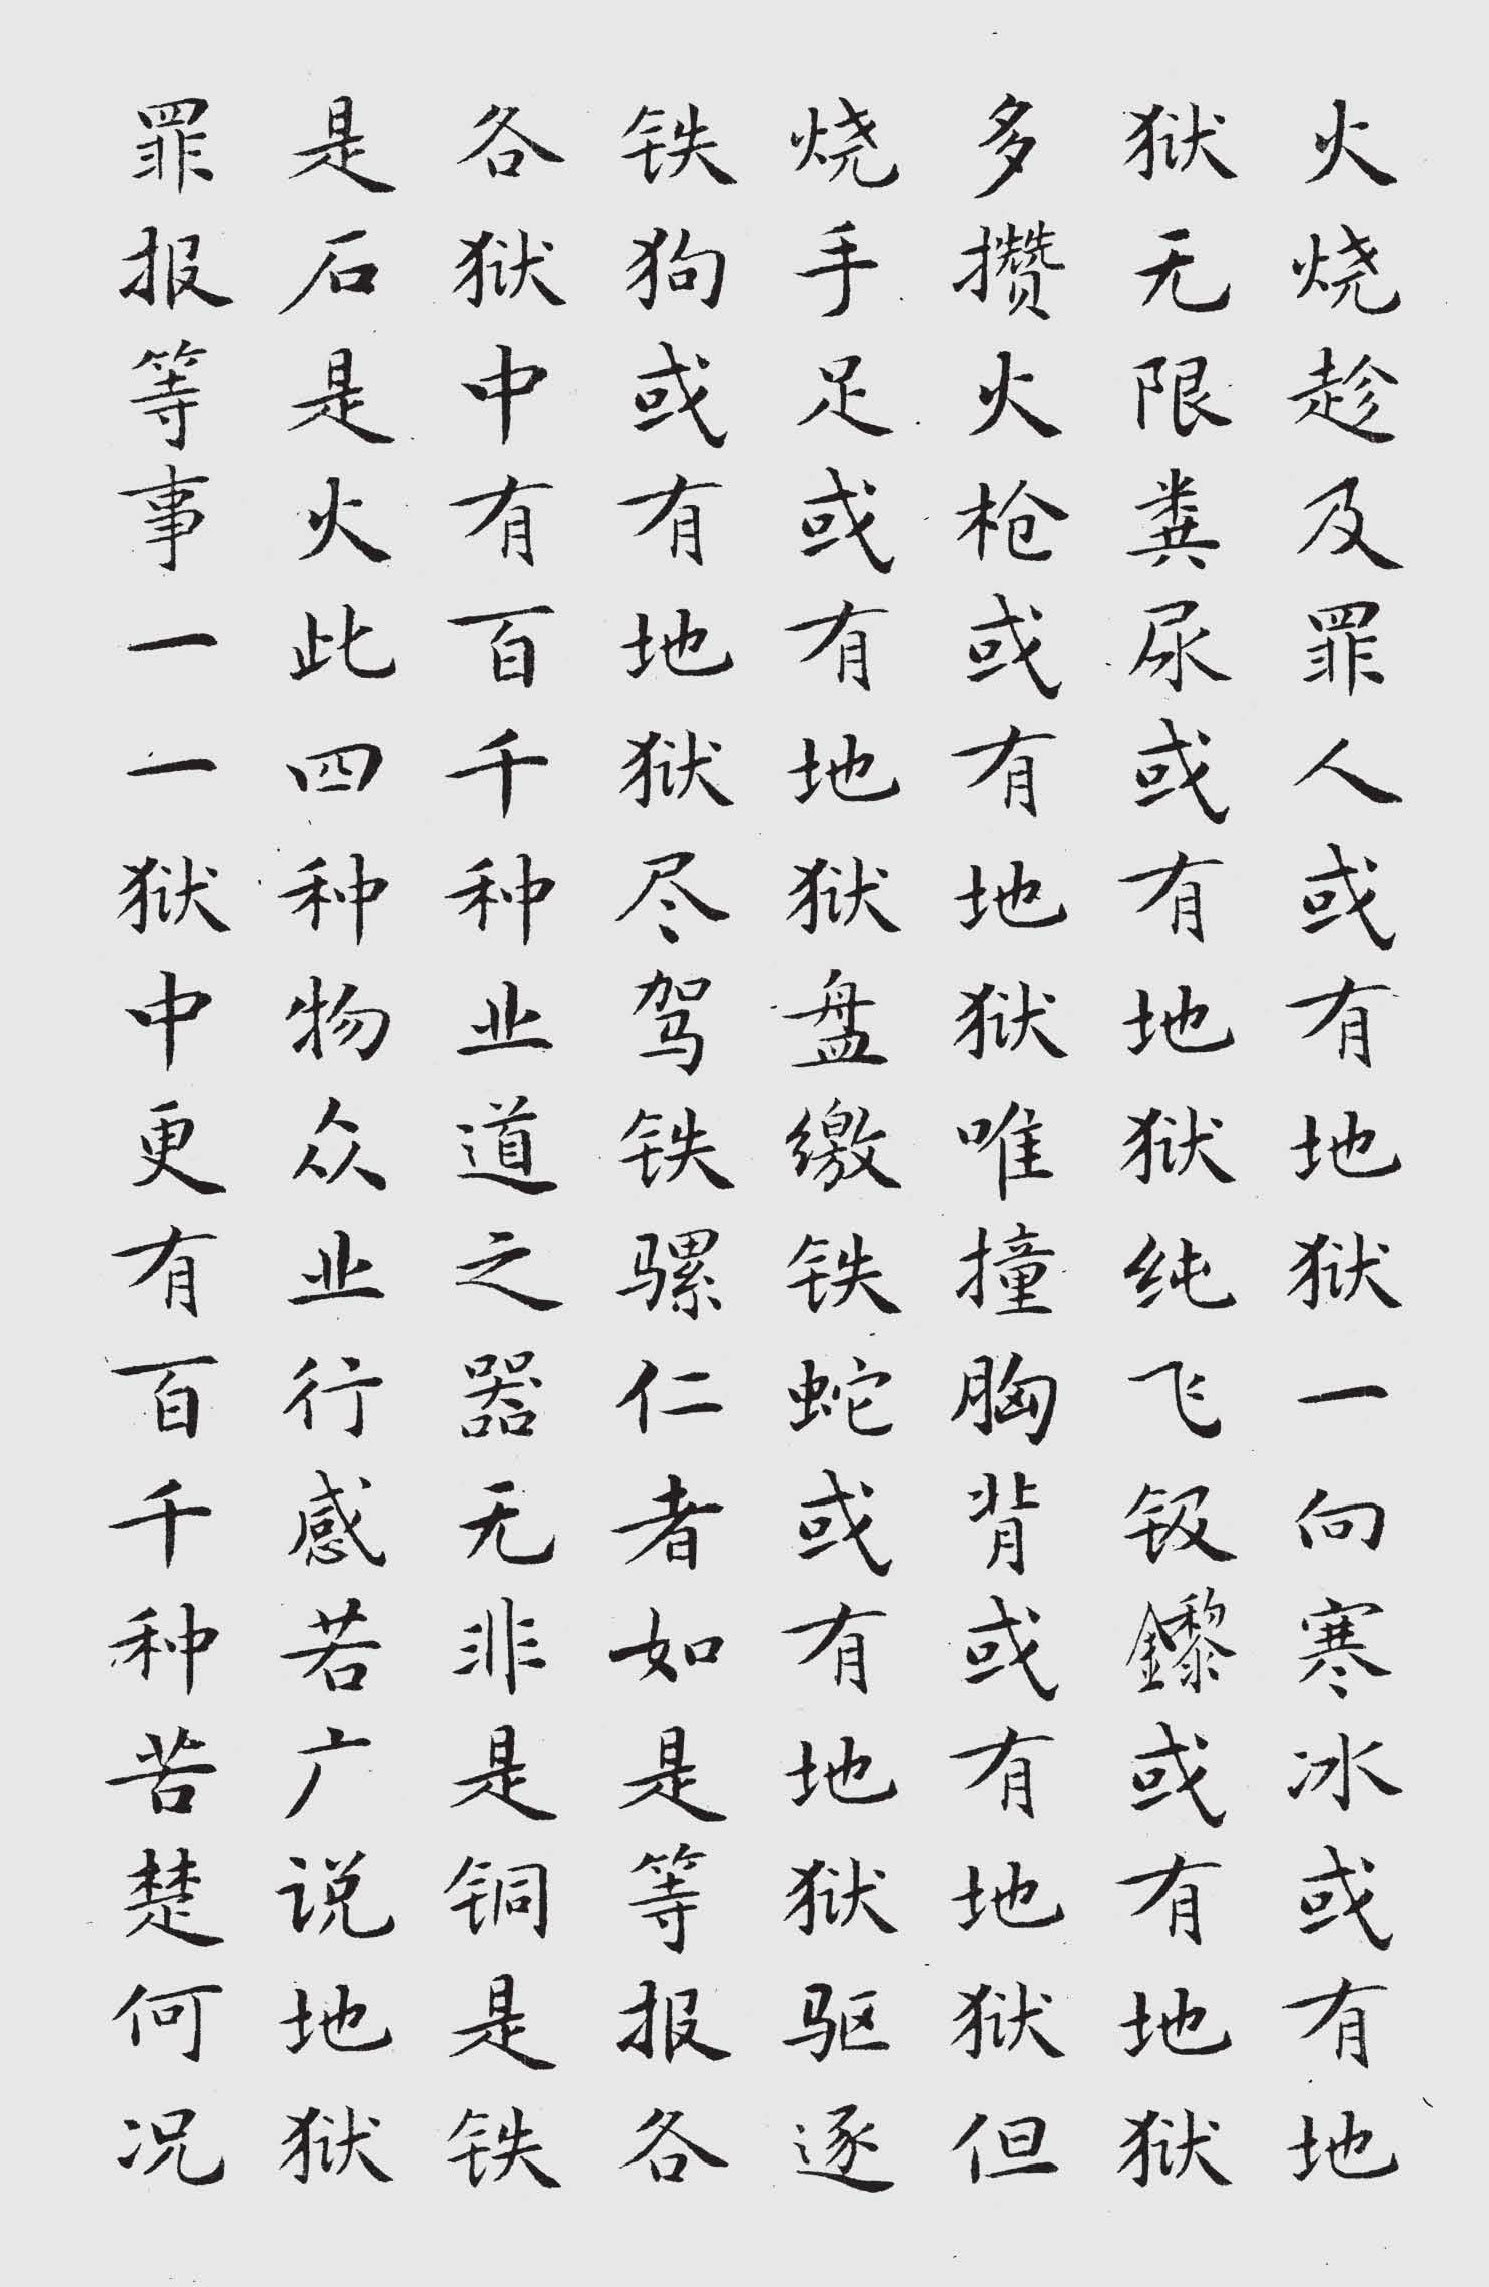 火烧趁及罪人或有地狱一向寒冰或有地
狱无限粪尿或有地狱纯飞钑鑗或有地狱
多攒火枪或有地狱唯撞胸背或有地狱但
烧手足或有地狱盘缴铁蛇或有地狱驱逐
铁狗或有地狱尽驾铁骡仁者如是等报各
各狱中有百千种业道之器无非是铜是铁
是石是火此四种物众业行感若广说地狱
罪报等事一一狱中更有百千种苦楚何况